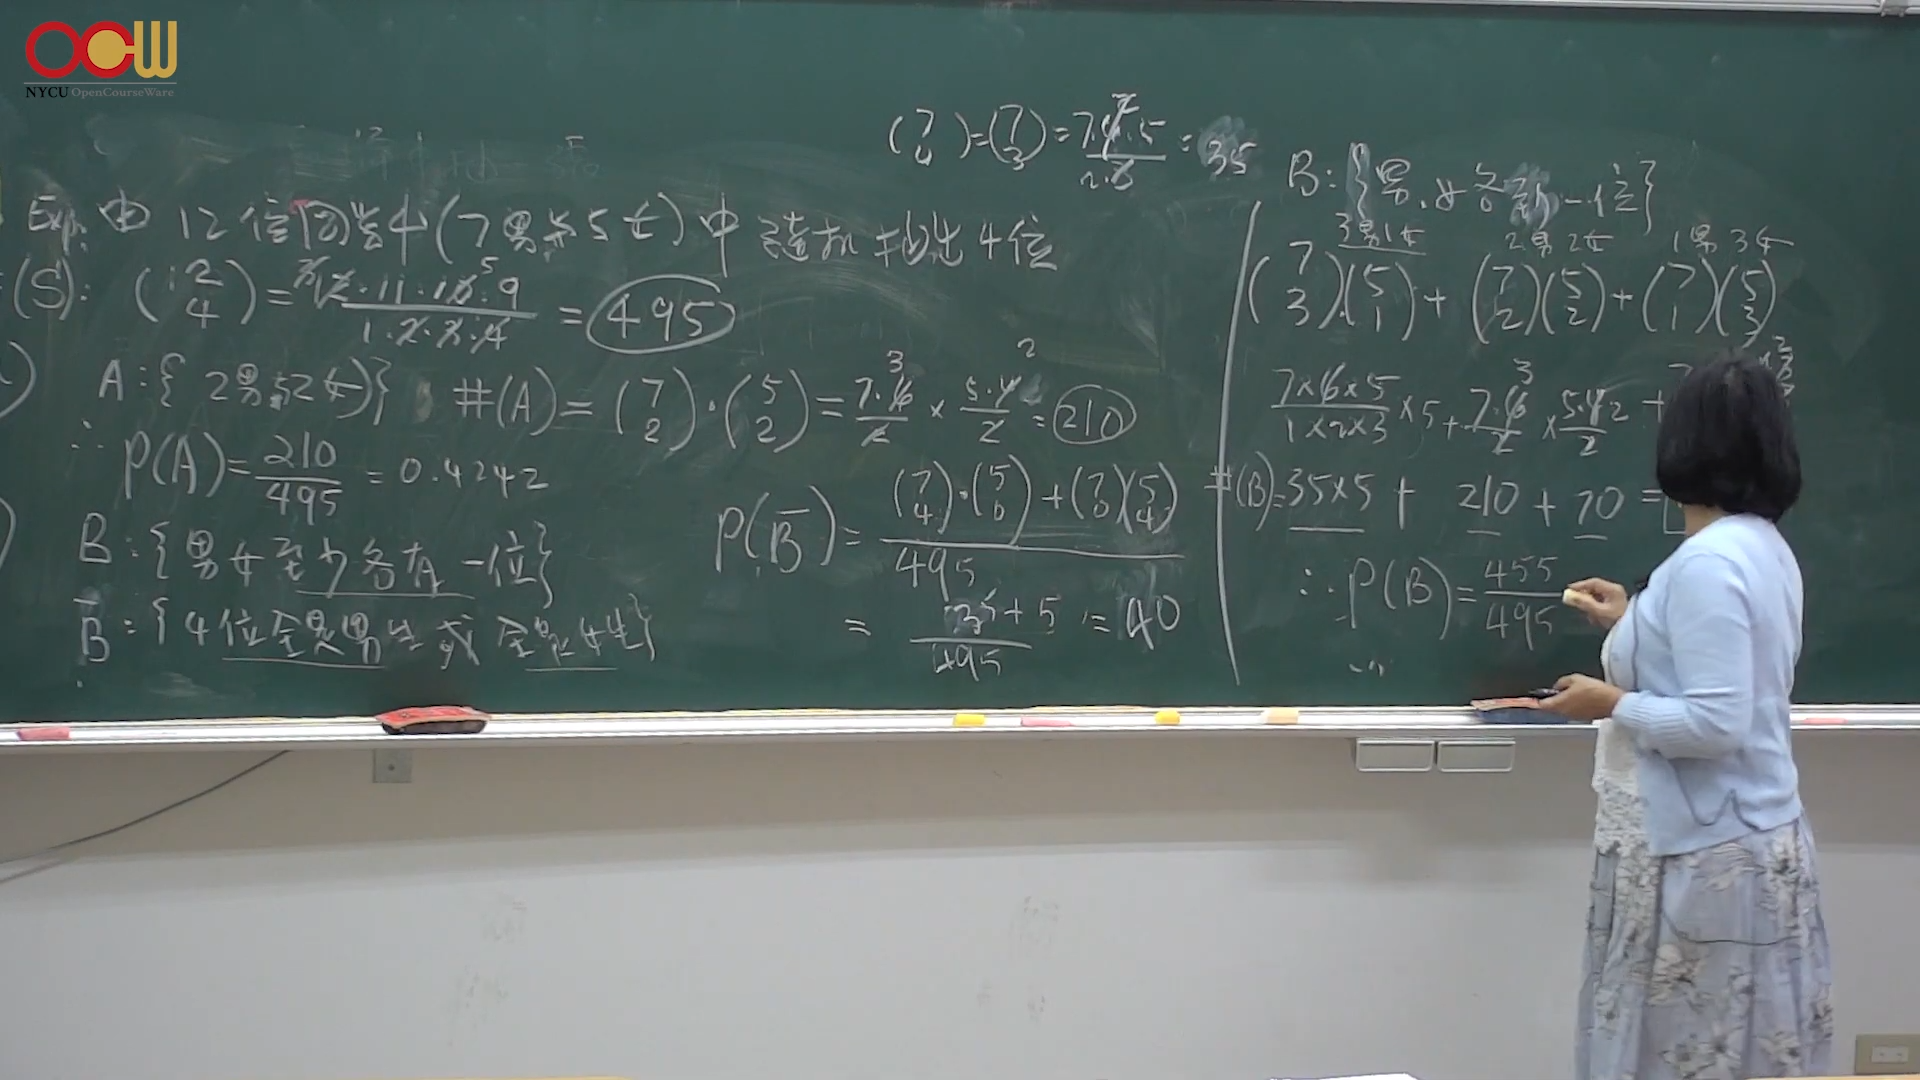 OCW
NYCU OpenCourseWare
Exp: 由 12 位同學中(7男與5女)中 隨機抽出 4位
(S): (12 4) = 12·11·10·9 / 1·2·3·4 = 495
A:{ 2男52女)} #(A) = (7 2)·(5 2) = 7·6/2 × 5·4/2 = 210
∴ P(A) = 210/495 = 0.4242
B:{男女至少各有一位}
B̄:{4位全是男生或全是女生}
(7 4)=(7 3)=7·6·5/2·3=35
P(B̄) = (7 4)·(5 0)+(7 0)(5 4) / 495
= 35+5 / 495 = 40
B:{男、女各到一位}
3男1女 2男2女 1男3女
(7 3)(5 1)+(7 2)(5 2)+(7 1)(5 3)
7×6×5/1×2×3 ×5+ 7·6/2 × 5·4/2 +
#(B)=35×5 + 210 + 70 =
∴ P(B) = 455/495